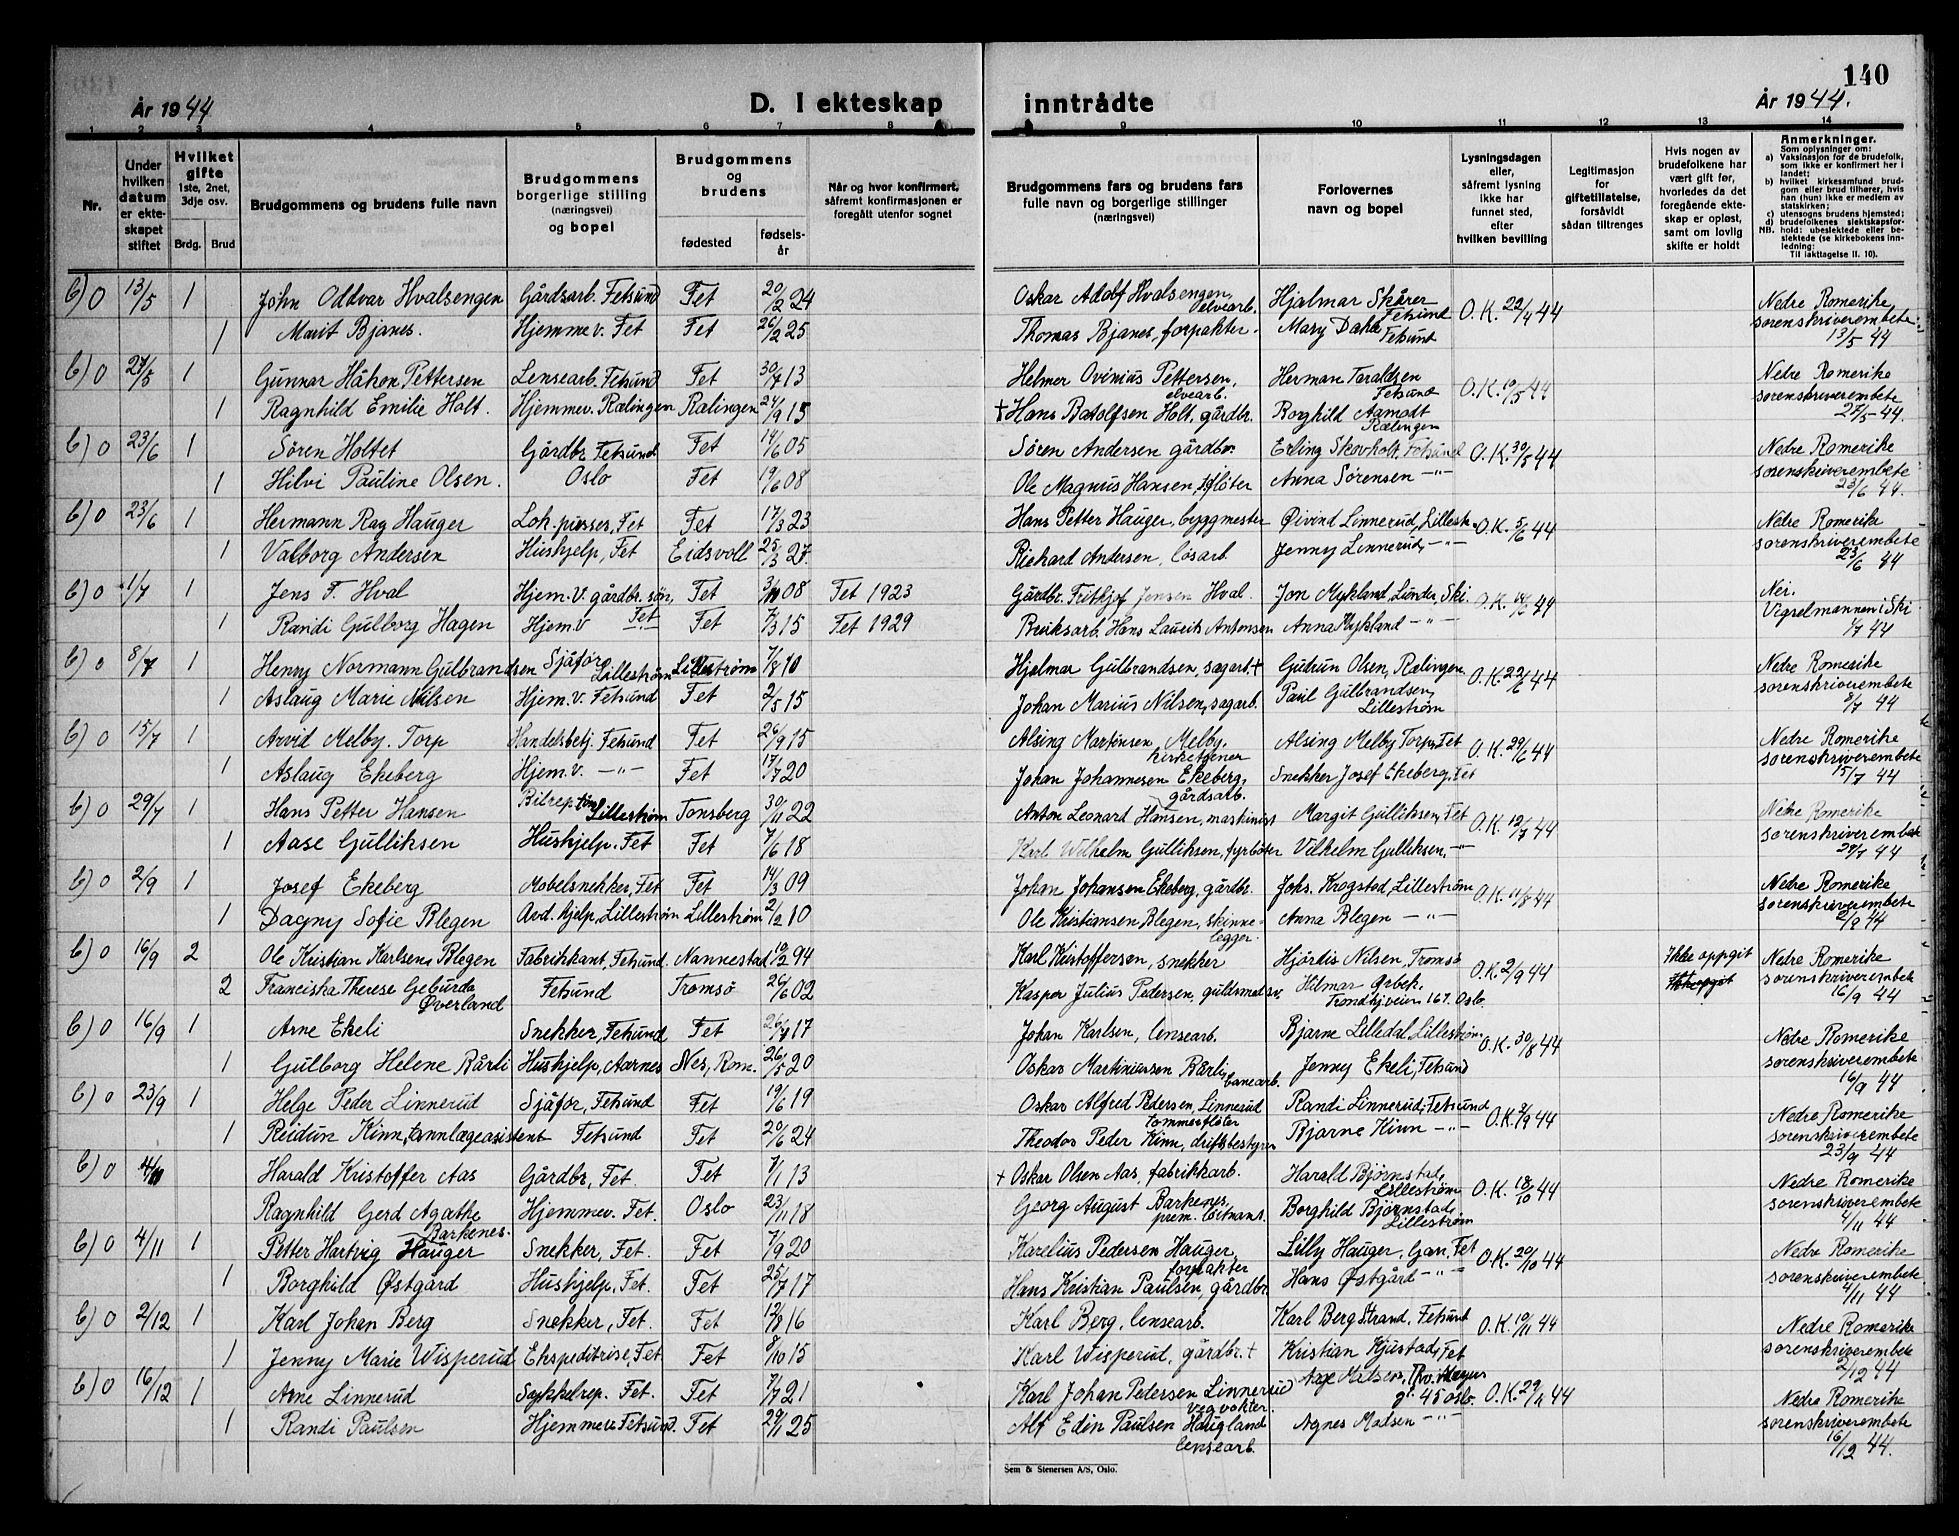 140
År 1944
D. I ekteskap inntrådte
År 1944.
1 2 3 4 5 6 7 8 9 10 11 12 13 14
Nr.
Under hvilken datum er ekteskapet stiftet
Hvilket gifte
1ste, 2net, 3dje osv.
Brdg. Brud
Brudgommens og brudens fulle navn
Brudgommens borgerlige stilling (næringsvei) og bopel
Brudgommens og brudens
fødested
fødselsår
Når og hvor konfirmert, såfremt konfirmasjonen er foregått utenfor sognet
Brudgommens fars og brudens fars fulle navn og borgerlige stillinger (næringsvei)
Forlovernes navn og bopel
Lysningsdagen eller, såfremt lysning ikke har funnet sted, efter hvilken bevilling
Legitimasjon for giftetillatelse, forsåvidt sådan tiltrenges
Hvis nogen av brudefolkene har vært gift før, hvorledes da det foregående ekteskap er opløst, samt om lovlig skifte er holdt
Anmerkninger.
Som oplysninger om:
a) Vaksinasjon for de brudefolk, som ikke er konfirmert her i landet;
b) hvilket kirkesamfund brudgom eller brud tilhører, hvis han (hun) ikke er medlem av statskirken;
c) utensogns brudens hjemsted;
d) brudefolkenes slektskapsforhold: ubeslektede eller beslektede (se kirkebokens innledning:
NB.
Til iakttagelse II. 10).
b) 0 13/5 1 John Oddvar Hvalsengen Gårdsarb. Fetsund Fet 20/2 24 Oskar Adolf Hvalsengen, elvearb. Hjalmar Skårer Fetsund O.K. 22/4 44 Nedre Romerike sorenskriverembete 13/5 44
1 Marit Bjanes. Hjemmev. Fet Fet 26/2 25 Thomas Bjanes, forpakter Mary Dahl Fetsund
b) 0 27/5 1 Gunnar Håkon Pettersen Lensearb. Fetsund Fet 30/7 13 Helmer Ovinius Pettersen, elvearb. Herman Taraldsen Fetsund O.K. 10/5 44 Nedre Romerike sorenskriverembete 27/5 44.
1 Ragnhild Emilie Holt. Hjemmev. Rælingen Rælingen 24/9 15 + Hans Batolfsen Holt, gårdbr. Borghild Aamodt Rælingen
b) 0 23/6 1 Søren Holtet Gårdbr. Fetsund Fet 14/6 05 Søren Andersen gårdbr. Erling Skovholt, Fetsund O.K. 30/5 44 Nedre Romerike sorenskriverembete 23/6 44.
1 Hilvi Pauline Olsen. Oslo Fet 19/6 08 Ole Magnus Hansen, fløter Anna Sørensen -"-
b) 0 23/6 1 Hermann Ray Hauger Lok.pusser, Fet Fet 17/3 23 Hans Petter Hauger, byggmester Øivind Linnerud, Lillestr. O.K. 5/6 44 Nedre Romerike sorenskriverembete 23/6 44
1 Valborg Andersen Hushjelp, Fet Eidsvoll 25/3 27 Richard Andersen, løsarb Jenny Linnerud, -"-
b) 0 1/7 1 Jens F. Hval Hjem.v. gårdbr. søn, Fet Fet 08 Fet 1923 Gårdbr. Fritkjof Jensen Hval. Jon Mykland, Lunder, Ski. O.K. 44 Nei. Vigselmannen i Ski 1/7 44
1 Randi Gulborg Hagen Hjem.v -"- Fet 7/3 15 Fet 1929 Bruksarb. Hans Laurits Antonsen Anna Mykland -"-
b) 0 8/7 1 Henry Normann Gulbrandsen Sjåfør Lillestrøm Lillestrøm 7/8 10 Hjalmar Gulbrandsen, sagarb + Gudrun Olsen, Rælingen O.K. 22/6 44 Nedre Romerike sorenskriverembete 8/7 44
1 Aslaug Marie Nilsen Hjem.v. Fetsund Fet 2/5 15 Johan Marius Nilsen, sagarb. Paul Gulbrandsen, Lillestrøm
b) 0 15/7 1 Arvid Melby. Torp Handelsbetj. Fetsund Fet 26/9 15 Alsing Martinsen Melby. kirketjener Alsing Melby Torp, Fet O.K. 29/6 44 Nedre Romerike sorenskriverembete 15/7 44
1 Aslaug Ekeberg Hjem.v. -"- Fet 17/7 20 Johan Johannesen Ekeberg, gårdsarb. Snekker Josef Ekeberg, Fet
b) 0 29/7 1 Hans Petter Hansen Bilrep. Lillestrøm Tønsberg 30/11 22 Anton Leonard Hansen, maskinist Margit Gulliksen, Fet O.K. 12/7 44 Nedre Romerike sorenskriverembete 29/7 44
1 Aase Gulliksen Hushjelp. Fet Fet 7/6 18 Karl Wilhelm Gulliksen, fyrbøter Vilhelm Gulliksen, -"-
b) 0 2/9 1 Josef Ekeberg Møbelsnekker, Fet Fet 14/3 09 Johan Johansen Ekeberg, gårdbr. Johs. Krogstad, Lillestrøm O.K. 11/8 44 Nedre Romerike sorenskriverembete 2/9 44
1 Dagny Sofie Blegen Avd. hjelp, Lillestrøm Lillestrøm 2/12 10 Ole Kristiansen Blegen, skinnelegger. Anna Blegen -"-
b) 0 16/9 2 Ole Kristian Karlsen Blegen Fabrikkant, Fetsund. Nannestad 10/2 94 Karl Kristoffersen, snekker Hjørdis Nilsen, Tromsø O.K. 2/9 44 Ikke oppgit Nedre Romerike sorenskriverembete 16/9 44
2 Franciska Therese Geburda Øverland Fetsund Tromsø 26/6 02 Kasper Julius Pedersen, guldsmedsv. Hilmar Ørbek. Trondhjveien 167. Oslo.
b) 0 16/9 1 Arne Ekeli Snekker, Fetsund Fet 17 Johan Karlsen, lensearb. Bjarne Lilledal, Lillestrøm O.K. 30/8 44 Nedre Romerike sorenskriverembete 16/9 44
1 Gulborg Helene Rårli Hushjelp, Aarnes Nes, Rom. 26/5 20 Oskar Martiniussen Rårli, banearb. Jenny Ekeli, Fetsund
b) 0 23/9 1 Helge Peder Linnerud Sjåfør, Fetsund Fet 19/6 19 Oskar Alfred Pedersen, Linnerud tømmerfløter Randi Linnerud, Fetsund O.K. 9/9 44 Nedre Romerike sorenskriverembete 23/9 44
1 Reidun Kinn, tannlægeasistent Fetsund Fet 20/6 24 Theodor Peder Kinn, driftsbestyrer Bjarne Kinn -"-
b) 0 4/11 Harald Kristoffer Aas Gårdbr, Fet. Fet 7/1 13 + Oskar Olsen Aas, fabrikkarb. Harald Bjørnstad, Lillestrøm O.K. 18/10 44 Nedre Romerike sorenskriverembete 4/11 44
Ragnhild Gerd Agathe Barkenes. Hjemmev. Fet. Oslo 23/11 18 Georg August Barkenes, prem. løitnant. Borghild Bjørnstad, Lillestrøm
b) 0 4/11 1 Petter Hartvig Hauger Snekker, Fet. Fet 7/9 20 Karelius Pedersen Hauger, forpakter Lilly Hauger, Gan, Fet O.K. 20/10 44 Nedre Romerike sorenskriverembete 4/11 44
1 Borghild Østgård Hushjelp, Fet. Fet 25/7 17 Hans Kristian Paulsen, gårdbr. Hans Østgård -"-
b) 0 2/12 1 Karl Johan Berg Snekker, Fet. Fet 12/8 16 Karl Berg, lensearb. Karl Berg Strand, Fetsund O.K. 10/11 44 Nedre Romerike sorenskriverembete 2/12 44
1 Jenny Marie Wisperud Ekspeditrise, Fet. Fet 8/10 15 Karl Wisperud, gårdbr. + Kristian Kjustad, Fet
b) 0 16/12 1 Arne Linnerud Sykkelrep. Fet. Fet 7/7 21 Karl Johan Pedersen Linnerud vegvokter. Aage Madsen, 45 Oslo. O.K. 29/11 44 Nedre Romerike sorenskriverembete 16/12 44.
1 Randi Paulsen Hjemmev. Fetsund. Fet 29/1 25 Alf Edin Paulsen Haugland lensearb. Agnes Madsen -"-
Sem & Stenersen A/S, Oslo.